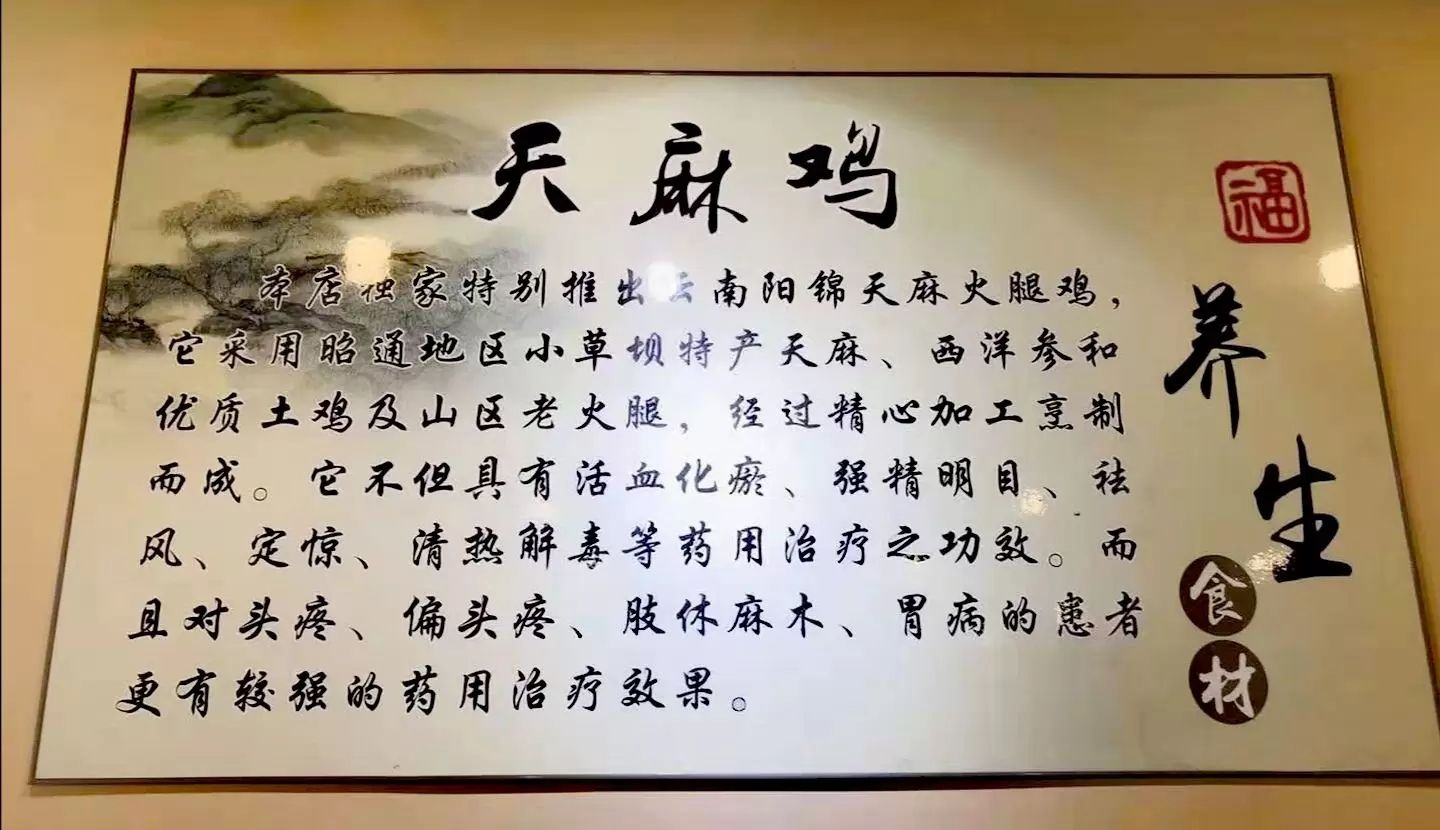 天麻鸡
本店独家特别推出云南阳锦天麻火腿鸡，
它采用昭通地区小草坝特产天麻、西洋参和
优质土鸡及山区老火腿，经过精心加工烹制
而成。它不但具有活血化瘀、强精明目、祛
风、定惊、清热解毒等药用治疗之功效。而
且对头疼、偏头疼、肢体麻木、胃病的患者
更有较强的药用治疗效果。
福
养生
食材